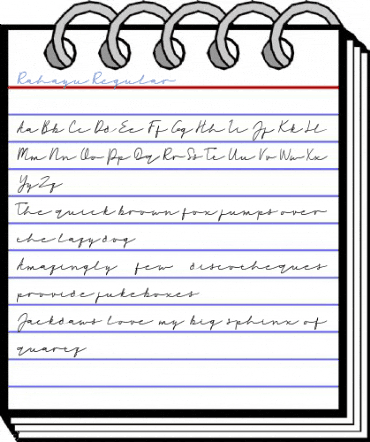 Rahayu Regular
Aa Bb Cc Dd Ee Ff Gg Hh Ii Jj Kk Ll
Mm Nn Oo Pp Qq Rr Ss Tt Uu Vv Ww Xx
Yy Zz
The quick brown fox jumps over
the lazy dog
Amazingly few discotheques
provide jukeboxes
Jackdaws love my big sphinx of
quartz